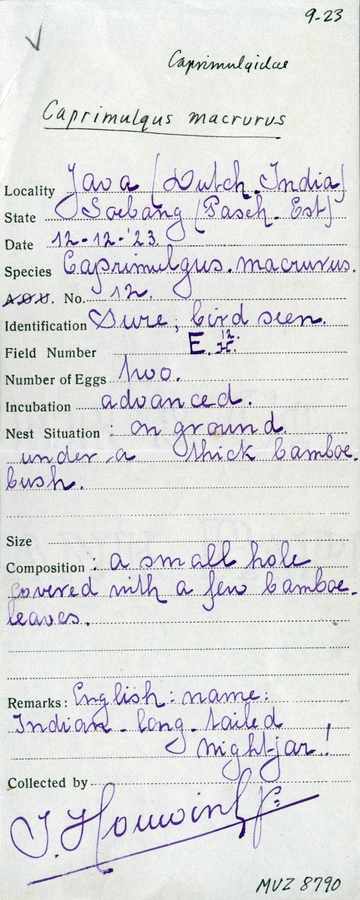 9-23
Caprimulgidae
Caprimulgus macrurus
Locality Java (Dutch. India)
State Soebang (Pasch. Est)
Date 12-12-'23.
Species Caprimulgus. macrurus.
A.O.U. No. 12.
Identification Sure; bird seen.
Field Number E. 12.
Number of Eggs two.
Incubation advanced.
Nest Situation : on ground
under a thick bamboe.
bush.
Size
Composition : a small hole
covered with a few bamboe.
leaves.
Remarks: English: name:
Indian-long-tailed
night-jar!
Collected by
MVZ 8790